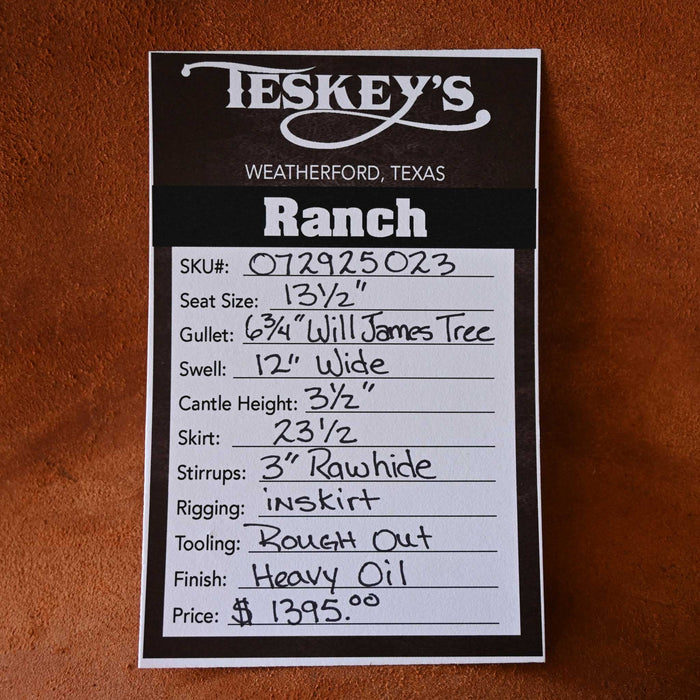 TESKEY'S
WEATHERFORD, TEXAS
Ranch
SKU#: 072925023
Seat Size: 13½"
Gullet: 6¾" Will James Tree
Swell: 12" Wide
Cantle Height: 3½"
Skirt: 23½
Stirrups: 3" Rawhide
Rigging: inskirt
Tooling: Rough Out
Finish: Heavy Oil
Price: $ 1395.00